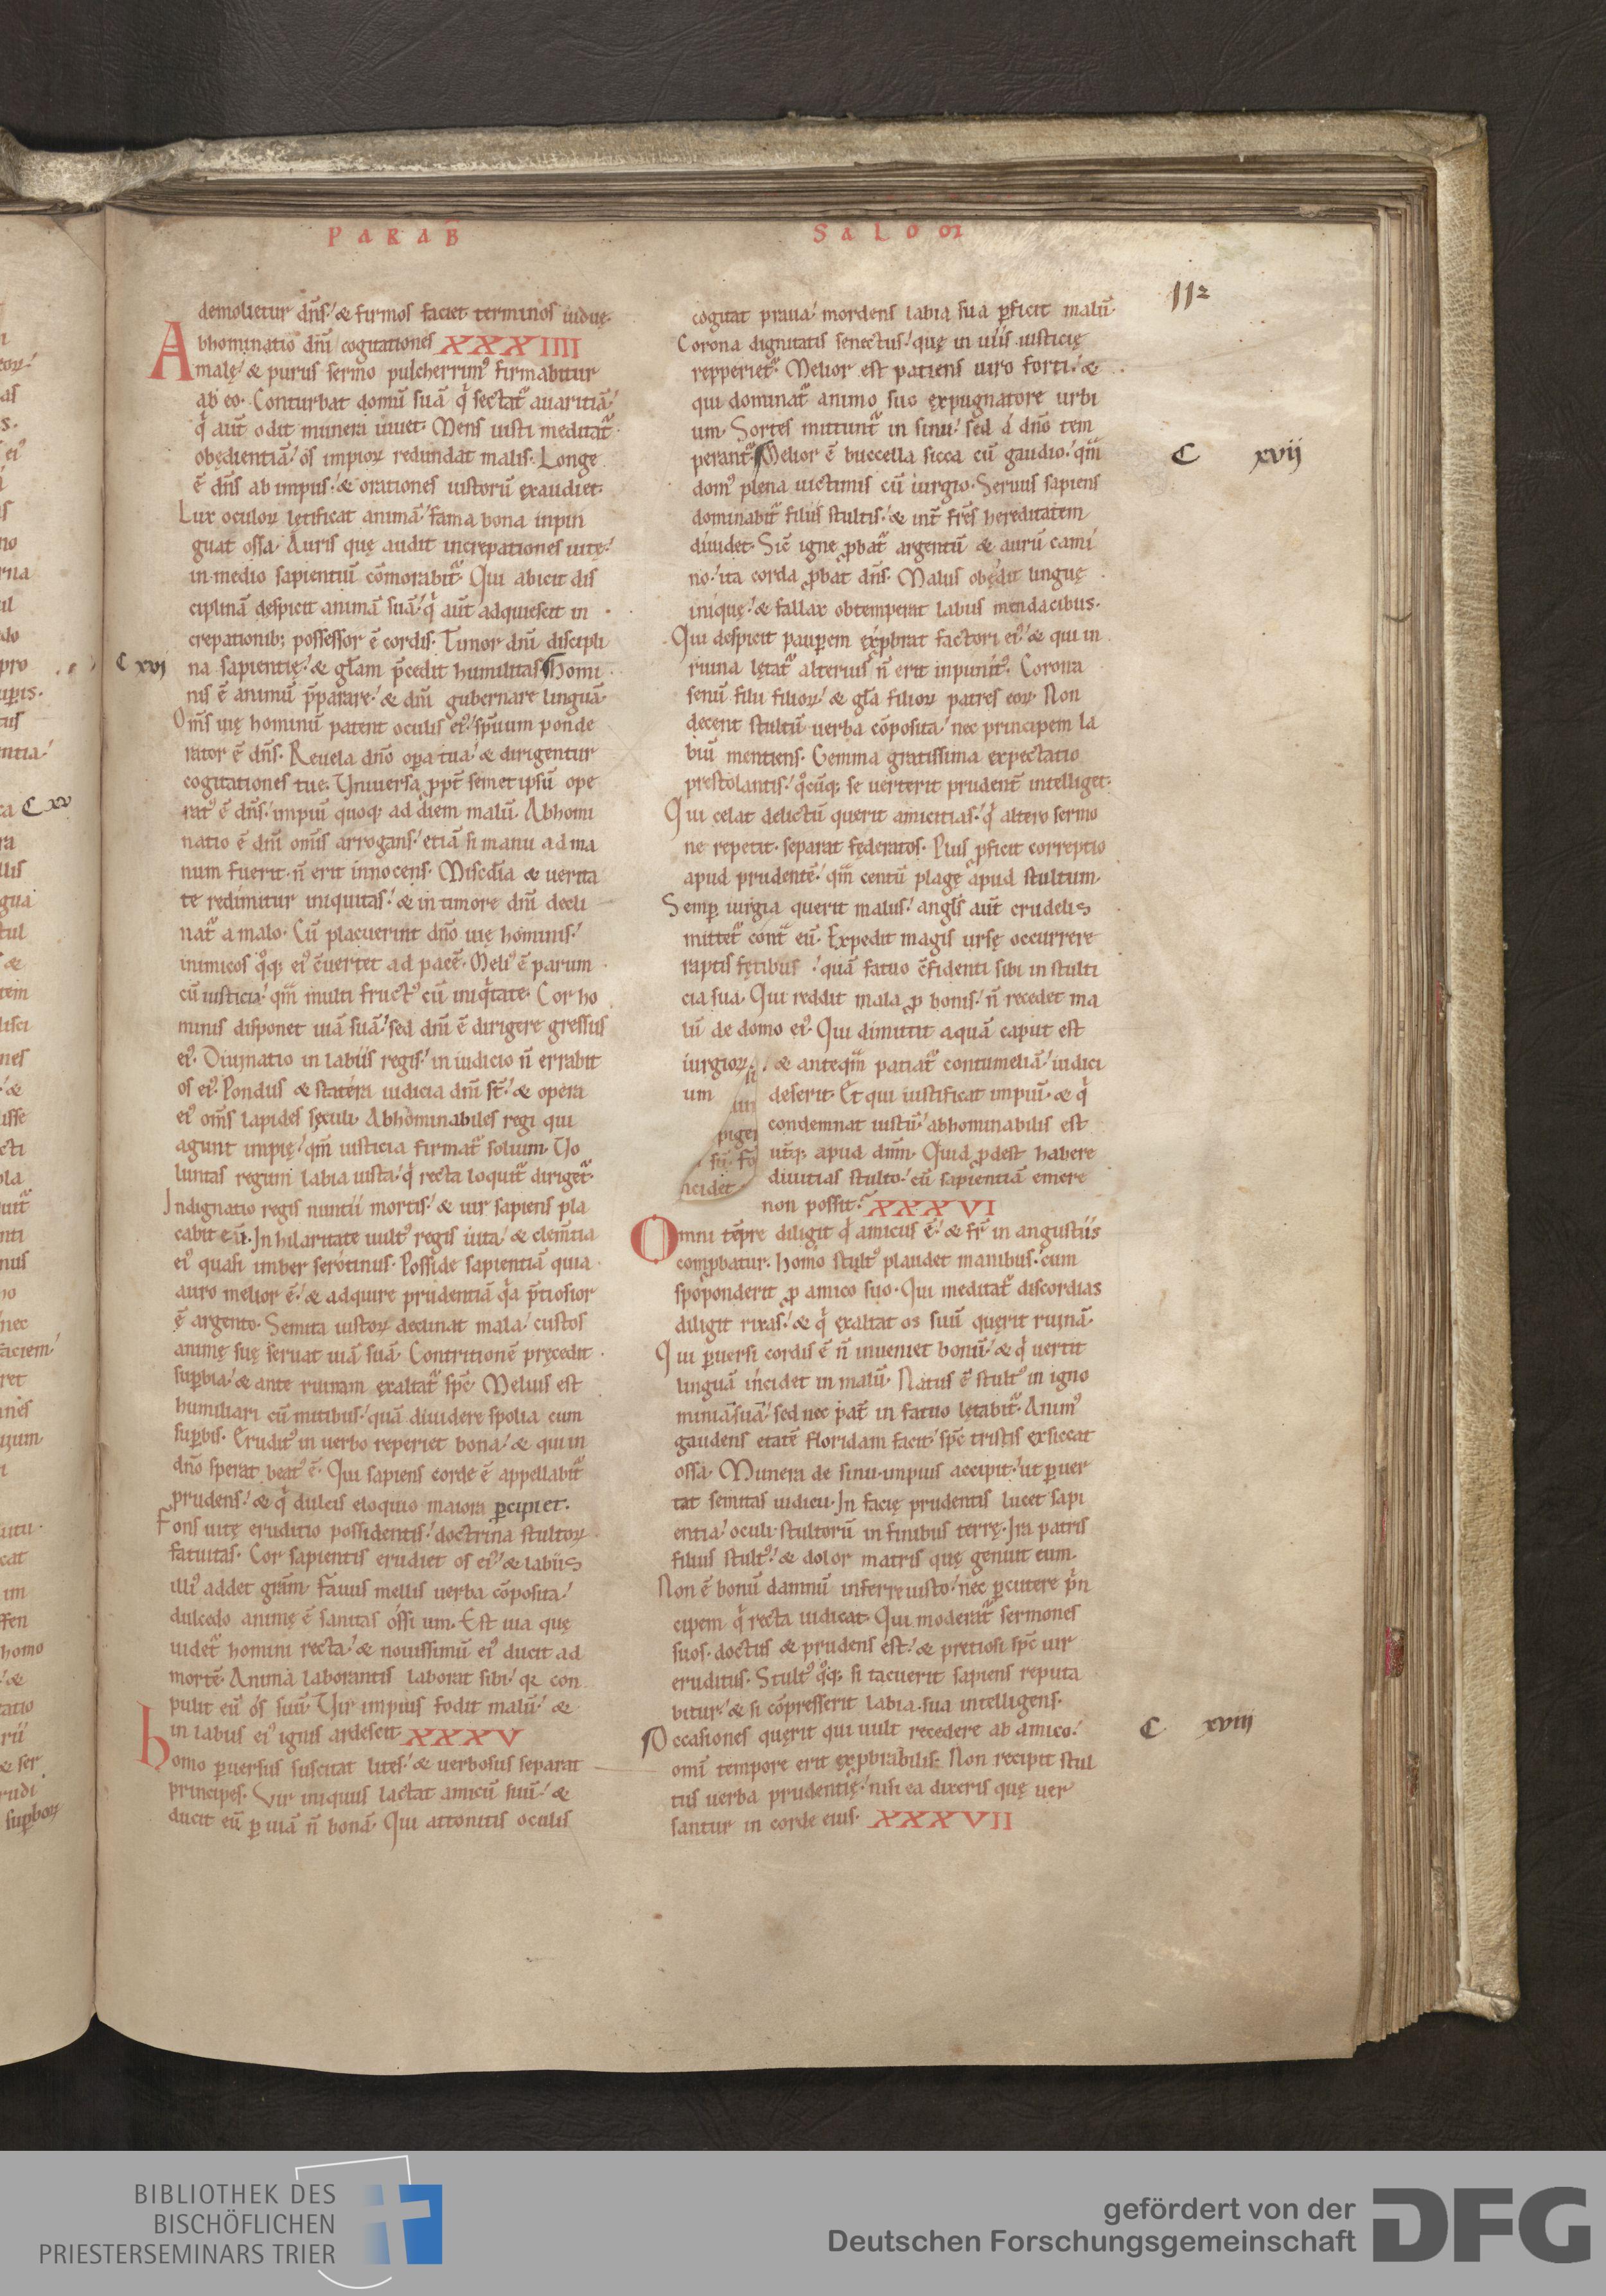 PARAB
SALOM
112
demolietur dn̄s .' & firmos faciet terminos uiduę.
Abhominatio dn̄i cogitationes XXXIIII
malę .' & purus sermo pulcherrimꝰ firmabitur
ab eo. Conturbat domū suā q̇ sectat᷑ auaritiā .'
q̇ aut̄ odit munera uiuet. Mens iusti meditat᷑
obędientiā .' os impioꝝ redundat malis. Longe
ē dn̄s ab impiis .' & orationes iustorū exaudiet.
Lux oculoꝝ lętificat animā .' fama bona inpin
guat ossa. Auris quę audit increpationes uitę .'
in medio sapientiū cōmorabit᷑. Qui abicit dis
ciplinā despicit animā suā .' q̇ aut̄ adquiescit in
crepationib; possessor ē cordis. Timor dn̄i discipli
C xvj
na sapientię .' & glām p̄cedit humilitas. Homi
nis ē animū p̄parare .' & dn̄i gubernare linguā.
Oms uię hominū patent oculis eiꝰ .' spirituum ponde
rator ē dn̄s. Reuela dn̄o opera tua .' & dirigentur
cogitationes tuę. Uniuersa ꝓpt̄ semetipsū ope
ratꝰ ē dn̄s .' impiū quoq; ad diem malū. Abhomi
natio ē dn̄i omīs arrogans .' etiā si manu ad ma
num fuerit n̄ erit innocens. Miscdīa & uerita
te redimitur iniquitas .' & in timore dn̄i decli
nat᷑ a malo. Cū placuerint dn̄o uię hominis .'
inimicos q̊q; eiꝰ c̄uertet ad pacē. Meliꝰ ē parum
cū iusticia .' qm̄ multi fructꝰ cū iniq̇tate. Cor ho
minis disponet uiā suā .' sed dn̄i ē dirigere gressus
eiꝰ. Diuinatio in labiis regis .' in iudicio n̄ errabit
os eiꝰ. Pondus & statera iudicia dn̄i st̄ .' & opera
eiꝰ oms lapides sęculi. Abhominabiles regi qui
agunt impię .' qm̄ iusticia firmat᷑ solium. Uo
luntas regum labia iusta .' q̇ recta loquit᷑ diriget᷑.
Indignatio regis nuntii mortis .' & uir sapiens pla
cabit eā. In hilaritate uultꝰ regis uita .' & clem̄tia
eiꝰ quasi imber serotinus. Posside sapientiā quia
auro melior ē .' & adquire prudentiā q̇a p̄tiosior
ē argento. Semita iustoꝝ declinat mala .' custos
animę suę seruat uiā suā. Contritionē pręcedit
suꝑbia .' & ante ruinam exaltat᷑ spc̄. Melius est
humiliari cū mitibus .' quā diuidere spolia cum
suꝑbis. Eruditꝰ in uerbo reperiet bona .' & qui in
dn̄o sperat beatꝰ ē. Qui sapiens corde ē appellabit᷑
prudens .' & q̇ dulcis eloquio maiora ꝑcipiet.
Fons uitę eruditio possidentis .' doctrina stultoꝝ
fatuitas. Cor sapientis erudiet os eiꝰ .' & labiis
illiꝰ addet gr̄am. Fauus mellis uerba cōposita .'
dulcedo animę ē sanitas ossi um. Est uia quę
uidet᷑ homini recta .' & nouissimū eiꝰ ducit ad
mortē. Anima laborantis laborat sibi .' qꝛ con
pulit eū os suū. Uir impius fodit malū .' &
in labiis eiꝰ ignis ardescit. XXXV
homo ꝑuersus suscitat lites .' & uerbosus separat
principes. Uir iniquus lactat amicū suū .' &
ducit eū ꝑ uiā n̄ bonā. Qui attonitis oculis
cogitat praua .' mordens labia sua ꝑficit malū.
Corona dignitatis senectus .' quę in uiis iusticię
repperiet᷑. Melior est patiens uiro forti .' &
qui dominat᷑ animo suo expugnatore urbi
um. Sortes mittunt᷑ in sinu .' sed a dn̄o tem
perant᷑. Melior ē buccella sicca cū gaudio .' qm̄
C xvij
domꝰ plena uictimis cū iurgio. Seruus sapiens
dominabit᷑ filiis stultis .' & int̄ frēs hereditatem
diuidet. Sic̄ igne ꝓbat᷑ argentū & aurū cami
no .' ita corda ꝓbat dn̄s. Malus obędit linguę
iniquę .' & fallax obtemperat labiis mendacibus.
Qui despicit pauꝑem exprobrat factori eiꝰ .' & qui in
ruina lętat᷑ alterius n̄ erit inpunitꝰ. Corona
senū filii filioꝝ .' & glā filioꝝ patres eoꝝ. Non
decent stultū uerba cōposita .' nec principem la
biū mentiens. Gemma gratissima expectatio
prestolantis .' q̊cūq; se uerterit prudent̄ intelliget.
Qui celat delictū querit amicitias .' q̇ altero sermo
ne repetit separat fęderatos. Plus ꝓficit correptio
apud prudentē .' qm̄ centū plagę apud stultum.
Semꝑ iurgia querit malus .' angls̄ aut̄ crudelis
mittet᷑ cont̄ eū. Expedit magis ursę occurrere
raptis fętibus .' quā fatuo c̄fidenti sibi in stulti
cia sua. Qui reddit mala ꝓ bonis .' n̄ recedet ma
lū de domo eiꝰ. Qui dimittit aquā caput est
iurgioꝝ .' & anteqm̄ patiat᷑ contumeliā .' iudici
um deserit. Et qui iustificat impiū .' & q̇
condemnat iustū .' abhominabilis est
ut̄q; apud dn̄m. Quid ꝓdest habere
diuitias stulto .' cū sapientiā emere
ncidet
non possit. XXXVI
Omni tēpre diligit q̇ amicus ē .' & fr̄ in angustiis
comꝓbatur. Homo stultꝰ plaudet manibus .' cum
spoponderit ꝓ amico suo. Qui meditat᷑ discordias
diligit rixas .' & q̇ exaltat os suū quęrit ruinā.
Qui ꝑuersi cordis ē n̄ inueniet bonū .' & q̇ uertit
linguā incidet in malū. Natus ē stultꝰ in igno
miniā suā .' sed nec pat̄ in fatuo lętabit᷑. Animꝰ
gaudens etatē floridam facit .' spc̄ tristis exsiccat
ossa. Munera de sinu impius accipit .' ut ꝑuer
tat semitas iudicii. In facię prudentis lucet sapi
entia .' oculi stultorū in finibus terrę. Ira patris
filius stultꝰ .' & dolor matris quę genuit eum.
Non ē bonū damnū inferre iusto .' nec ꝑcutere ṗn
cipem q̇ recta iudicat. Qui moderat᷑ sermones
suos doctus & prudens est .' & pretiosi spc̄ uir
eruditus. Stultꝰ q̊q; si tacuerit sapiens reputa
bitur .' & si cōpresserit labia sua intelligens.
Occasiones quęrit qui uult recedere ab amico .'
C xviij
omī tempore erit exprobrabilis. Non recipit stul
tus uerba prudentię .' nisi ea dixeris quę uer
santur in corde eius. XXXVII
C xv
BIBLIOTHEK DES
BISCHÖFLICHEN
PRIESTERSEMINARS TRIER
gefördert von der
Deutschen Forschungsgemeinschaft
DFG